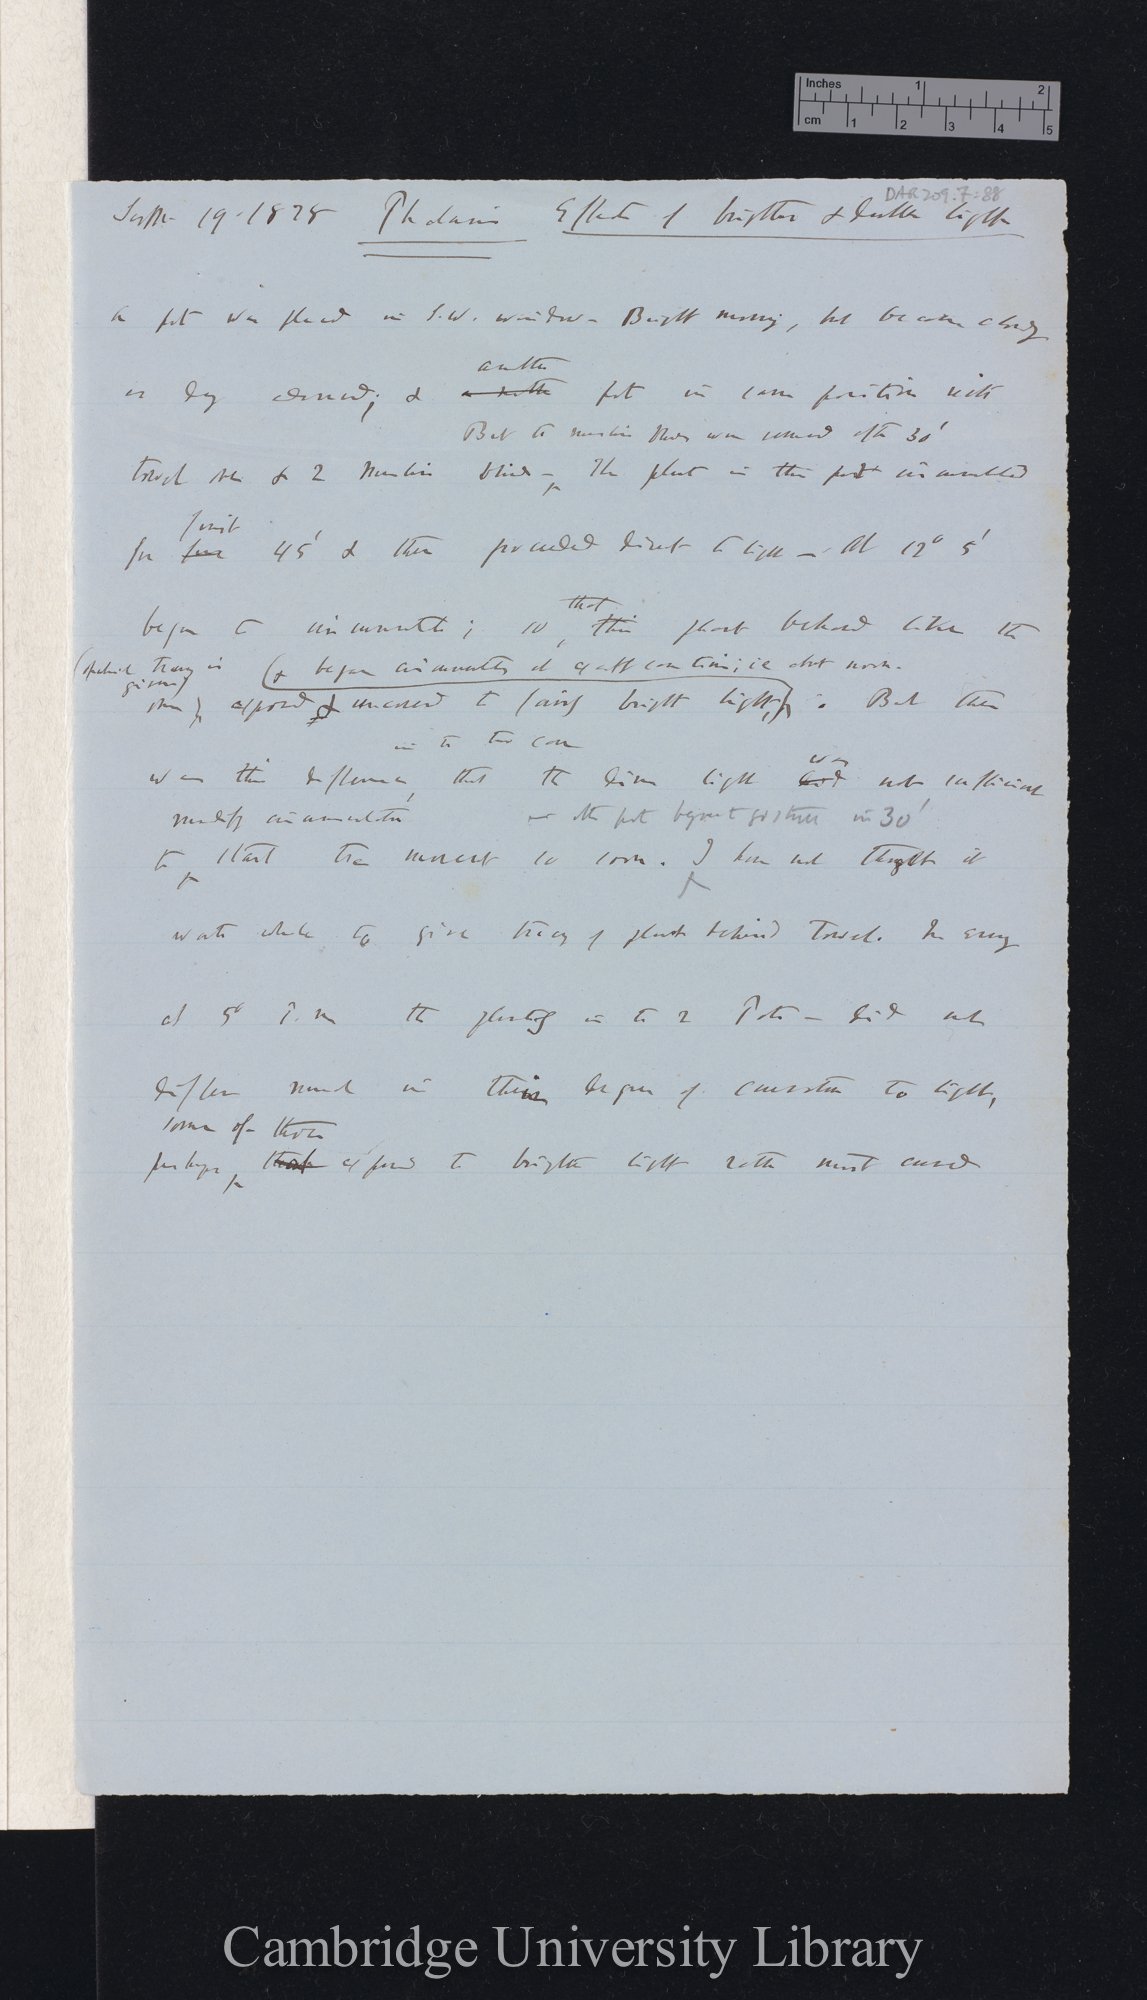 Inches 1 2
cm 1 2 3 4 5
DAR 209.7:88
Sept 19. 1878 Phalaris Effects of brighter & duller light
A pot was placed in S.W. window – Bright morning, but became cloudy
as day advanced; & another pot in same position with
But the muslin blinds were removed after 30'
towel over & 2 muslin blinds – The plant in this pot circumnutated
for first 45' & then proceeded direct to light – At 12° 5'
began to circumnutate; so that this plant behaved like the
(& began circumnutate at exactly same time; ie about noon.
one exposed & uncovered to fairly bright light). But there
in the two cases
was this difference, that the dim light was not sufficient
modify circumnutation
other pot began to go straight in 30'
to start the movement so soon. I have not thought it
worth while to give tracing of plant behind towel. In evening
at 5° P.m the plants in the 2 Pots – did not
differ much in their degree of curvature to light,
some of those
perhaps, exposed to brighter light rather most curved
Cambridge University Library